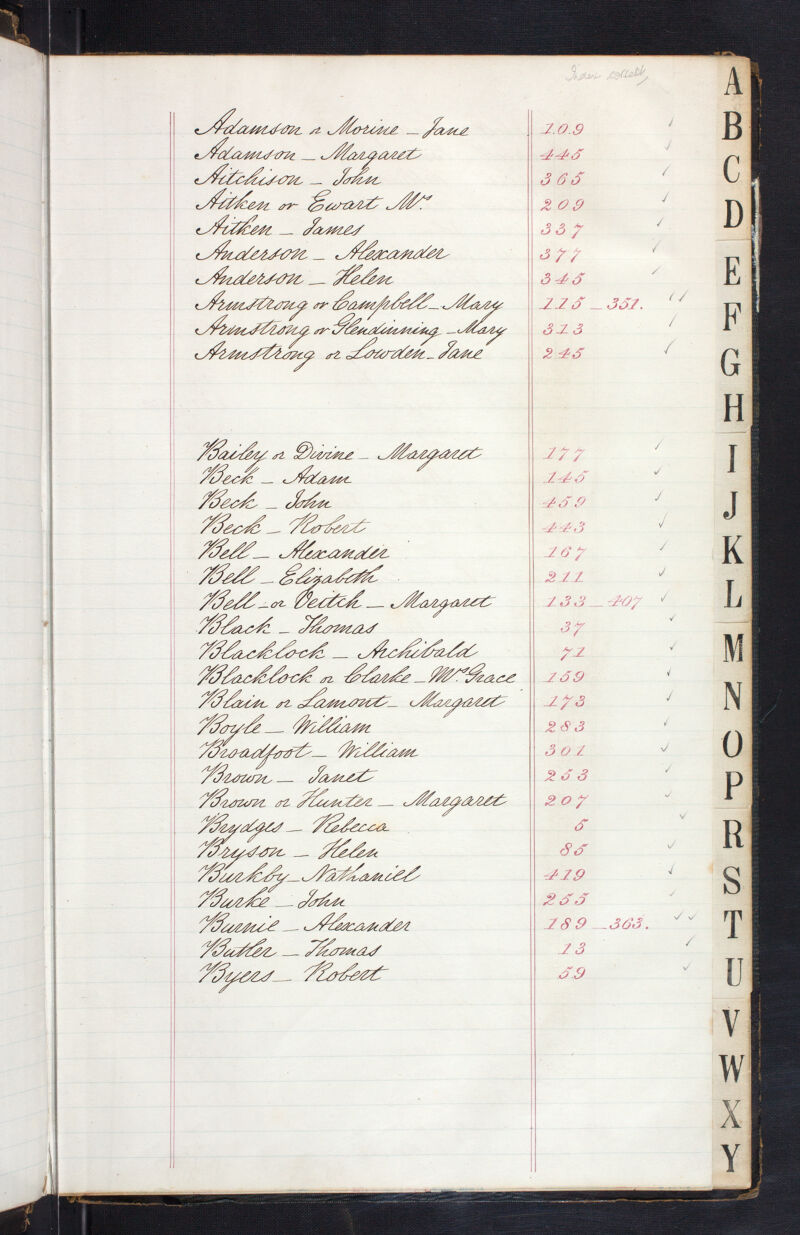 Index correct
Adamson or Morine - Jane 109
Adamson - Margaret 445
Aitchison - John 365
Aitken or Ewart Mrs 209
Aitken - James 337
Anderson - Alexander 377
Anderson - Helen 345
Armstrong or Campbell - Mary 115 - 351.
Armstrong or Glendinning - Mary 313
Armstrong or Lowden - Jane 245
Bailey or Divine - Margaret 177
Beck - Adam 145
Beck - John 459
Beck - Robert 443
Bell - Alexander 167
Bell - Elizabeth 211
Bell - or Veitch - Margaret 133 - 407
Black - Thomas 37
Blacklock - Archibald 71
Blacklock or Clarke - Mrs Grace 159
Blain or Lamont - Margaret 173
Boyle - William 283
Broadfoot - William 301
Brown - Janet 253
Brown or Hunter - Margaret 207
Brydges - Rebecca 5
Bryson - Helen 85
Burkby - Nathaniel 419
Burke - John 255
Burnie - Alexander 189 - 363.
Butler - Thomas 13
Byers - Robert 59
A
B
C
D
E
F
G
H
I
J
K
L
M
N
O
P
R
S
T
U
V
W
X
Y